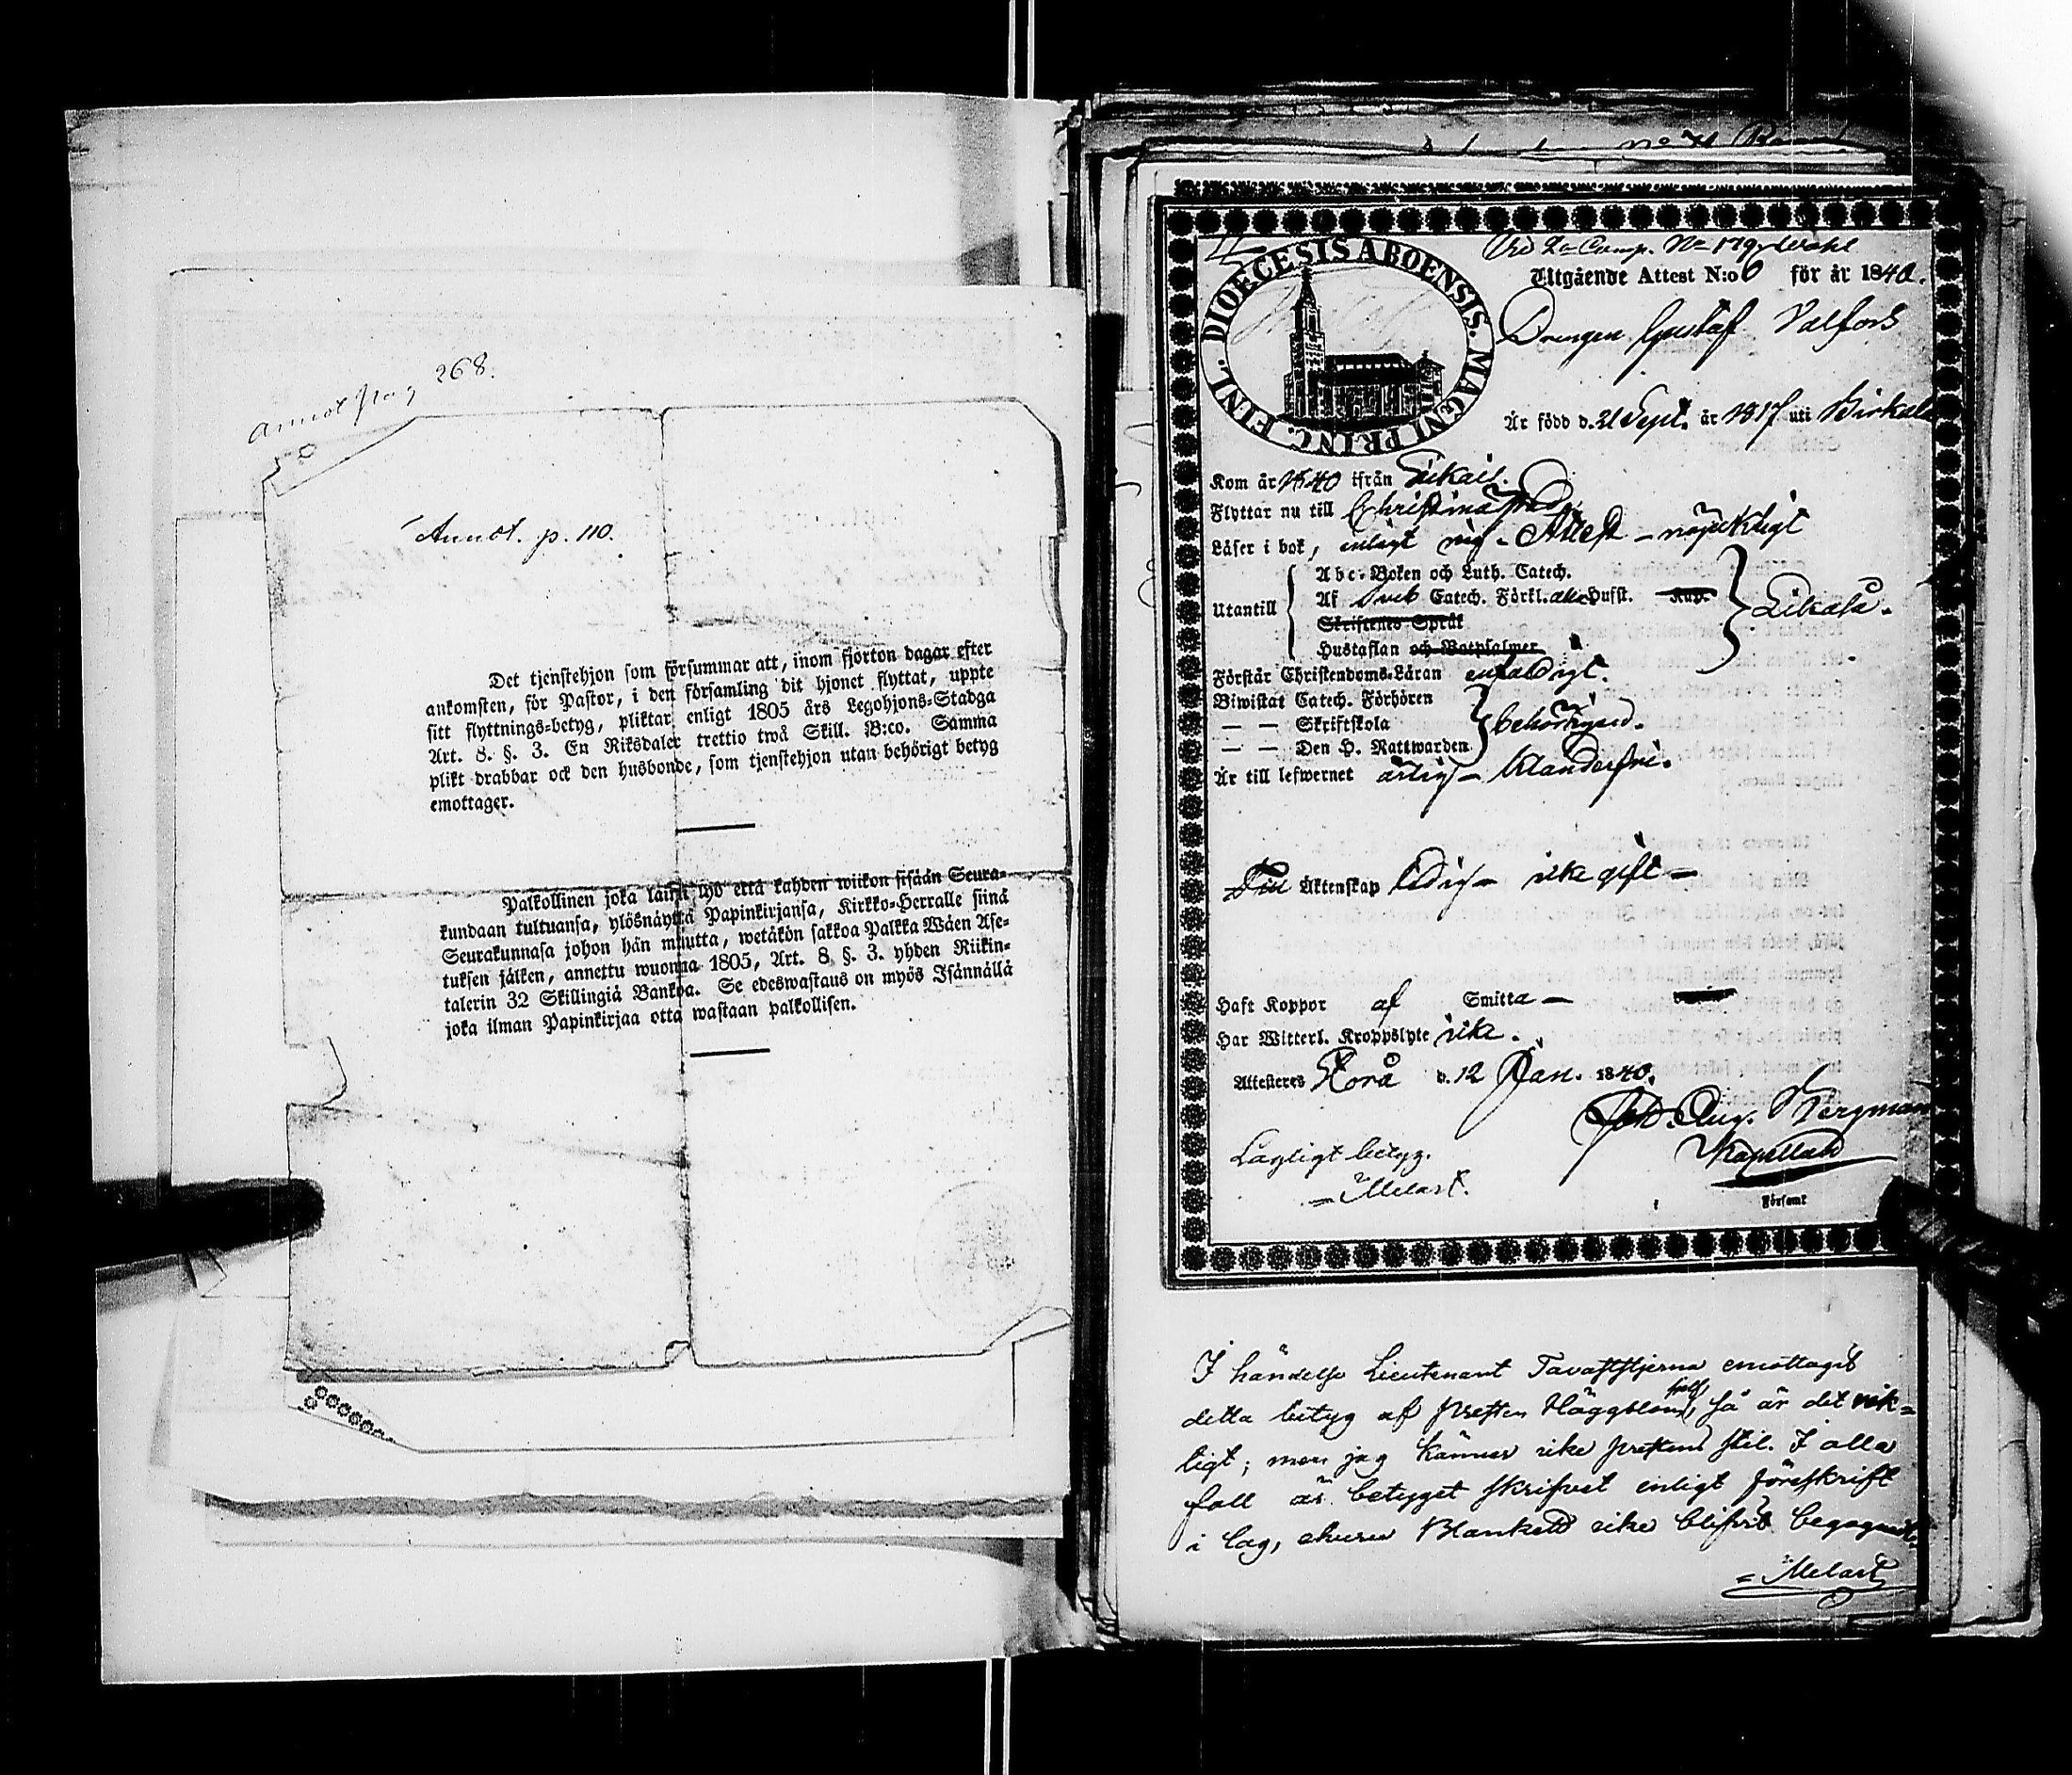 Annot pag 268.
Annot. p. 110.
Det tjenstehjon som försummar att, inom fjorton dagar efter
ankomsten, för Pastor, i den församling dit hjonet flyttat, uppte
sitt flyttnings-betyg, pliktar enligt 1805 års Legohjons-Stadga
Art. 8. §. 3. En Riksdaler trettio twå Skill. B:co. Samma
plikt drabbar ock den husbonde, som tjenstehjon utan behörigt betyg
emottager.
Palkollinen joka laimi lyö että kahden wiikon sisään Seura-
kundaan tultuansa, ylösnäyttä Papinkirjansa, Kirkko-Herralle siinä
Seurakunnasa johon hän muutta, wetäkön sakkoa Palkka Wäen Ase-
tuksen jälken, annettu wuonna 1805, Art. 8 §. 3. yhden Riikin-
talerin 32 Skillingiä Bankoa. Se edeswastaus on myös Isännällä
joka ilman Papinkirjaa otta wastaan palkollisen.
Vid 2a Comp. No 179
DIOECESIS ABOENSIS. MAGNI PRINC. FINL.
Utgående Attest N:o 6 för år 1840.
Drengen Gustaf Valfors
Är född d. 21 Sept. år 1817 uti Birkala
Kom år 1840 ifrån
Flyttar nu till Christinæstad
Läser i bok, enligt Attest nöjaktigt
Utantill
Abc-Boken och Luth. Catech.
Af Sveb Catech. Förkl. Husst. Kap.
Skriftenes Språk
Hustaflan och Botpsalmer
Likaså.
Förstår Christendoms-Läran enfaldigt.
Biwistat Catech. Förhören
— — Skriftskola
— — Den H. Nattwarden
behörigen.
Är till lefwernet ärlig klanderfri.
Till Äktenskap ledig icke gift
Haft Koppor af Smitta
Har Witterl. Kroppslyte icke.
Attesteres Storå d. 12 Jan. 1840.
Joh. Aug. Bergman
Kapellan
Församl
Lagligt betyg.
Melart.
I händelse Lieutenant Tavaststjerna emottagit
detta betyg af presten Häggblom sjelf, så är det rik-
tigt; men jag känner icke prestens stil. I alla
fall är betyget skrifvet enligt föreskrift
i lag, ehuru Blankett icke blifvit begagnad.
Melart